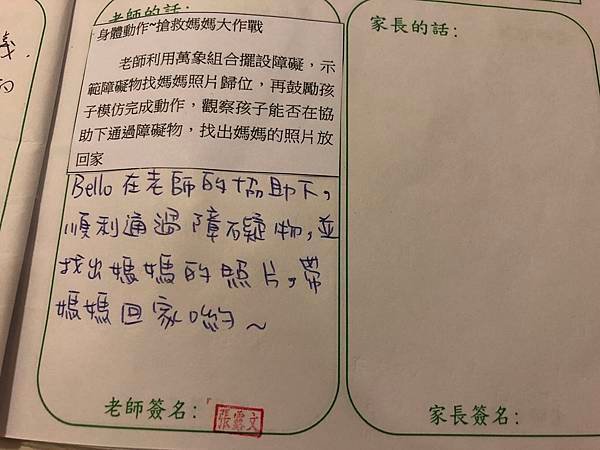 老師的話:
身體動作~搶救媽媽大作戰
老師利用萬象組合擺設障礙，示
範障礙物找媽媽照片歸位，再鼓勵孩
子模仿完成動作，觀察孩子能否在協
助下通過障礙物，找出媽媽的照片放
回家
Bello在老師的協助下，
順利通過障礙物，並
找出媽媽的照片，帶
媽媽回家喲~
老師簽名:
張露文
家長的話:
家長簽名:
的